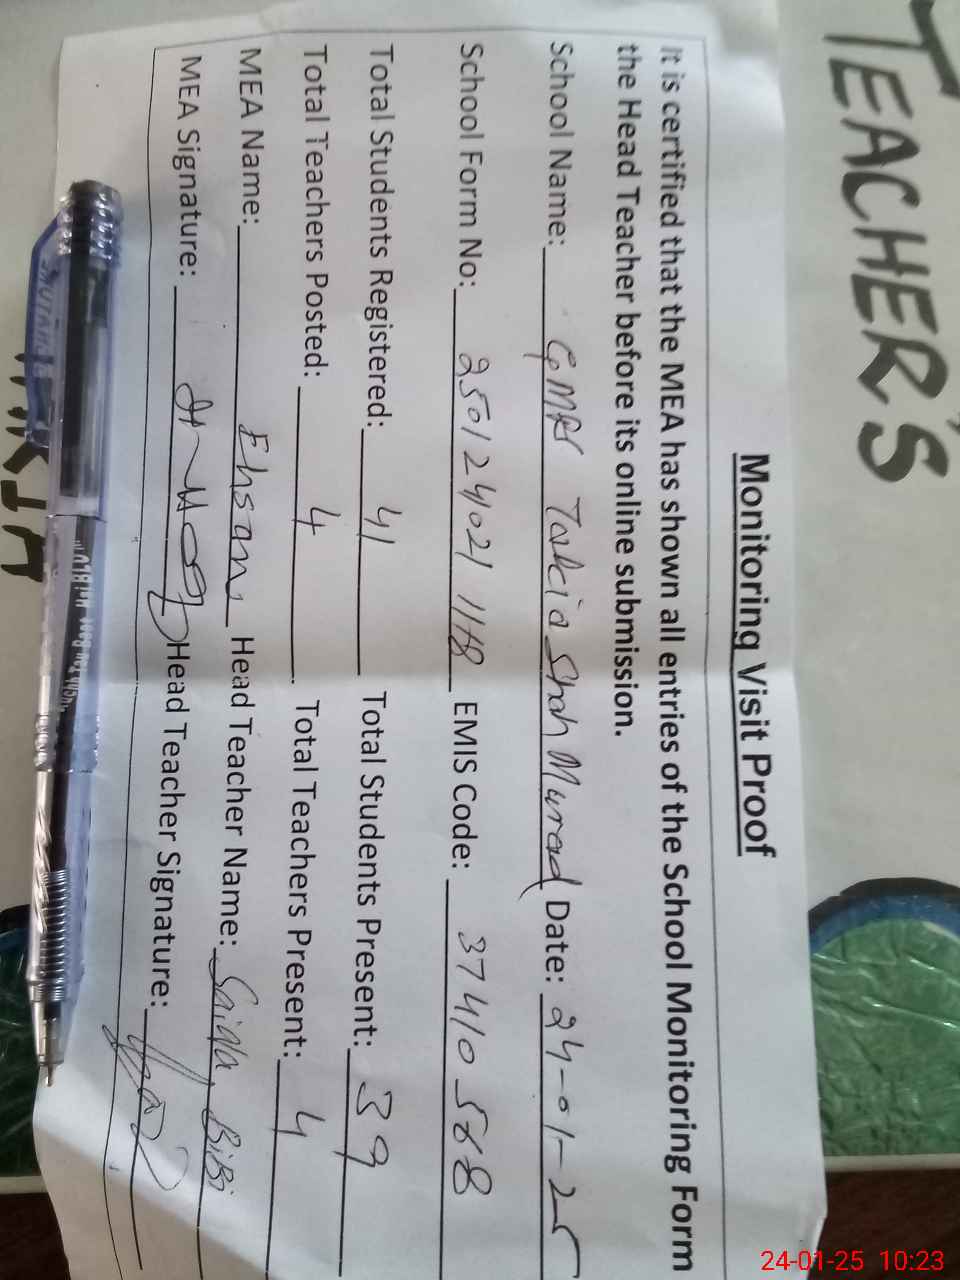 TEACHER'S
Monitoring Visit Proof
It is certified that the MEA has shown all entries of the School Monitoring Form
the Head Teacher before its online submission.
School Name: GMPS Takia Shah Murad Date: 24-01-25
School Form No: EMIS Code: 37410568
Total Students Registered: 41 Total Students Present: 39
Total Teachers Posted: 4 Total Teachers Present: 4
MEA Name: Ehsan Head Teacher Name: Saida Bibi
MEA Signature: Head Teacher Signature:
24-01-25 10:23